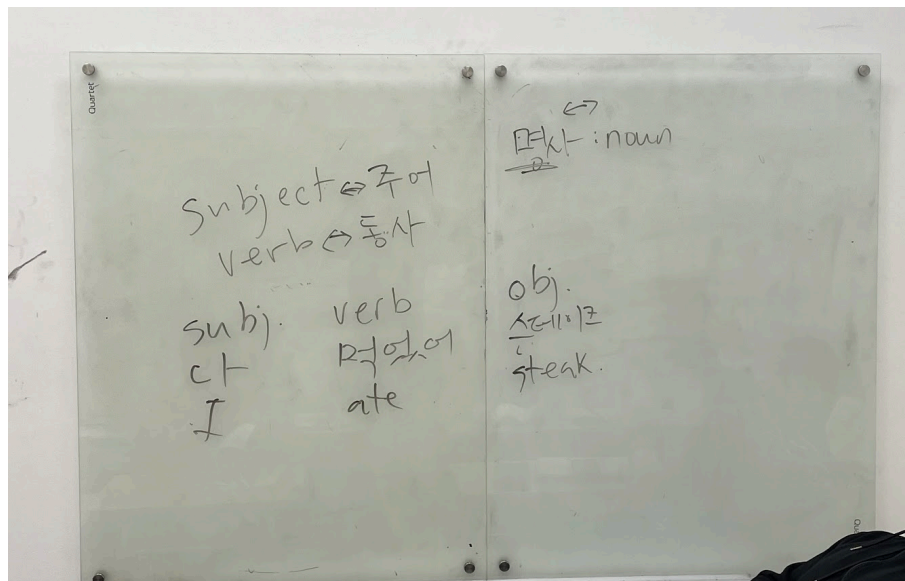 Quartet
subject ↔ 주어
verb ↔ 동사
subj. verb
나 먹었어
I ate
↔
명사 : noun
obj.
스테이크
steak.